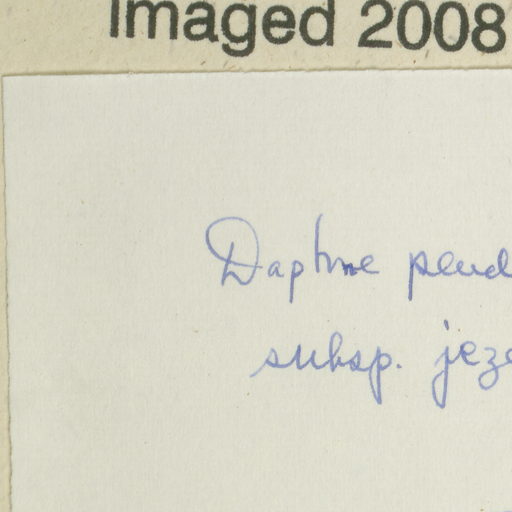 Imaged 2008
Daphne pseud
subsp. jeze